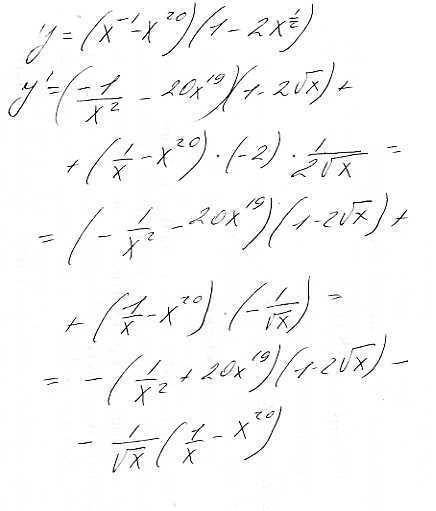 y = (x⁻¹ - x²⁰)(1 - 2x^{1/2})
y' = (-1/x² - 20x¹⁹)(1 - 2√x) +
+ (1/x - x²⁰) · (-2) · 1/(2√x) =
= (-1/x² - 20x¹⁹)(1 - 2√x) +
+ (1/x - x²⁰) · (-1/√x) =
= -(1/x² + 20x¹⁹)(1 - 2√x) -
- 1/√x (1/x - x²⁰)